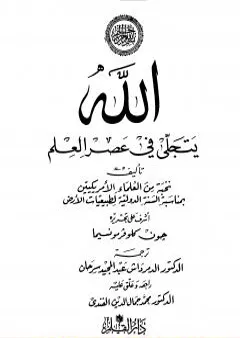 الله
يتجلى في عصر العلم
تأليف
نخبة من العلماء الأمريكيين
بمناسبة السنة الدولية لطبيعيات الأرض
أشرف على تحريره
جون كلوفر مونسيما
ترجمة
الدكتور الدمرداش عبد المجيد سرحان
راجعه وعلق عليه
الدكتور محمد جمال الدين الفندي
دار القلم